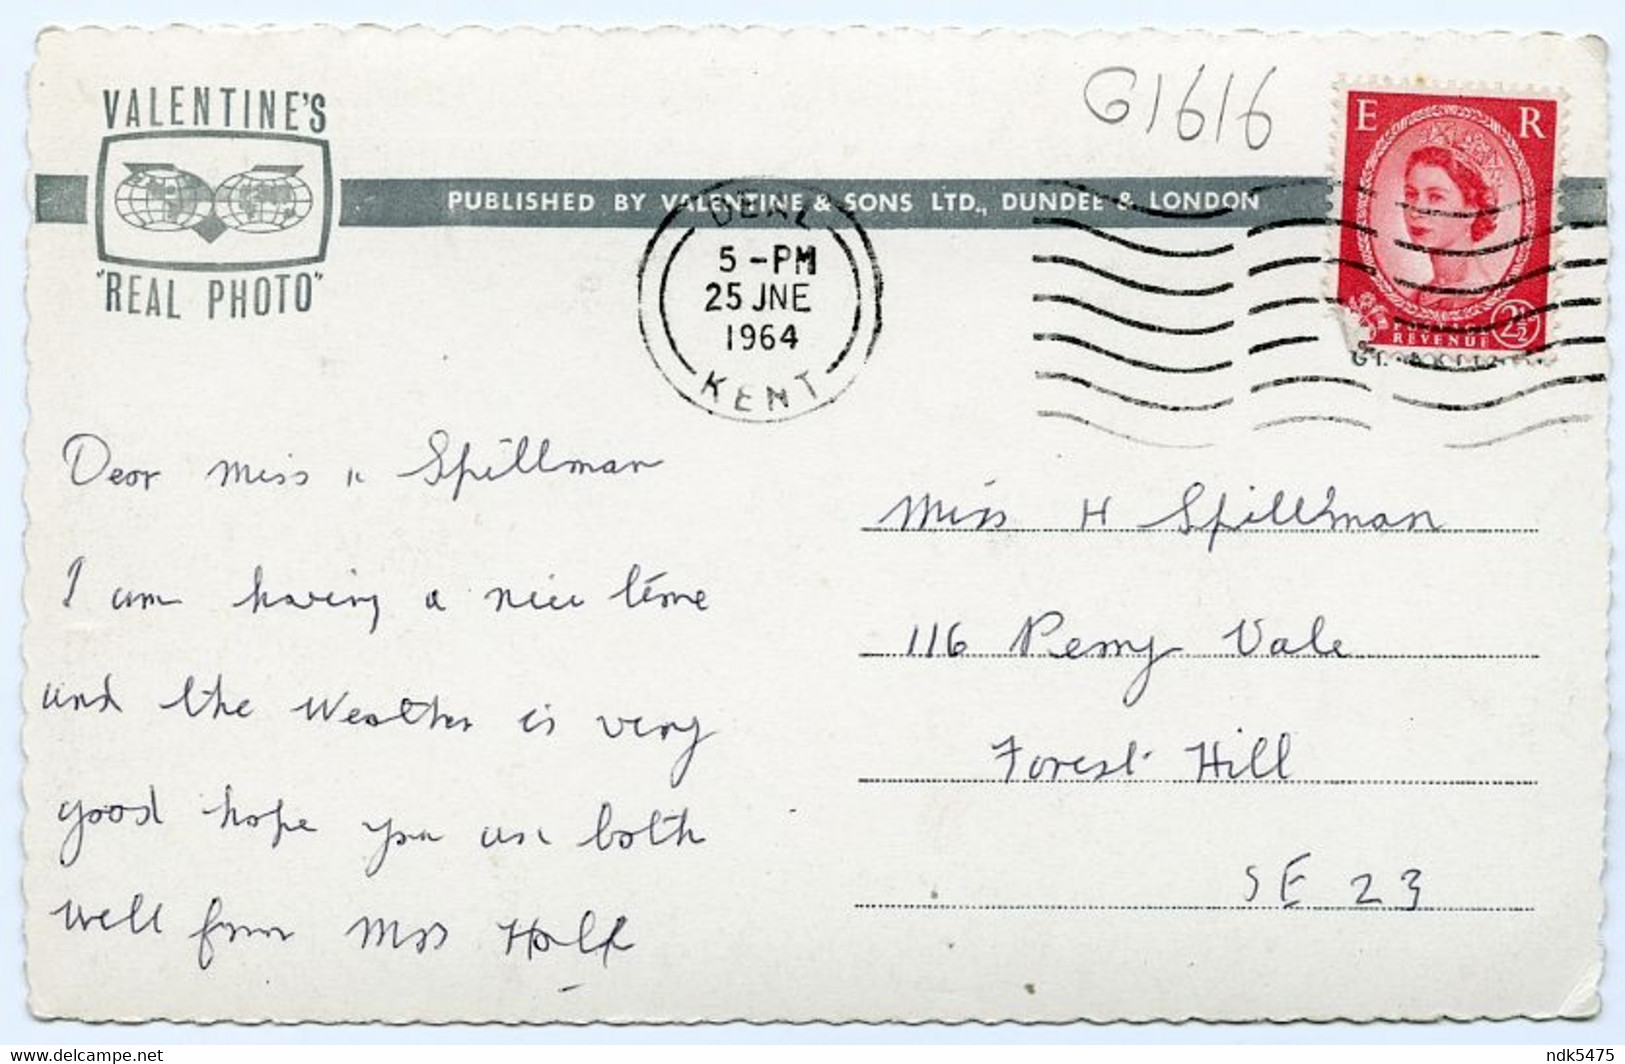 VALENTINE'S
"REAL PHOTO"
PUBLISHED BY VALENTINE & SONS LTD., DUNDEE & LONDON
G1616
E R
REVENUE 2½
DEAL
5-PM
25 JNE
1964
KENT
Dear Miss H Spillman
I am having a nice time
and the Weather is very
good hope you are both
well from Mrs
Miss H Spillman
116 Perry Vale
Forest Hill
SE 23
delcampe.net
ndk5475